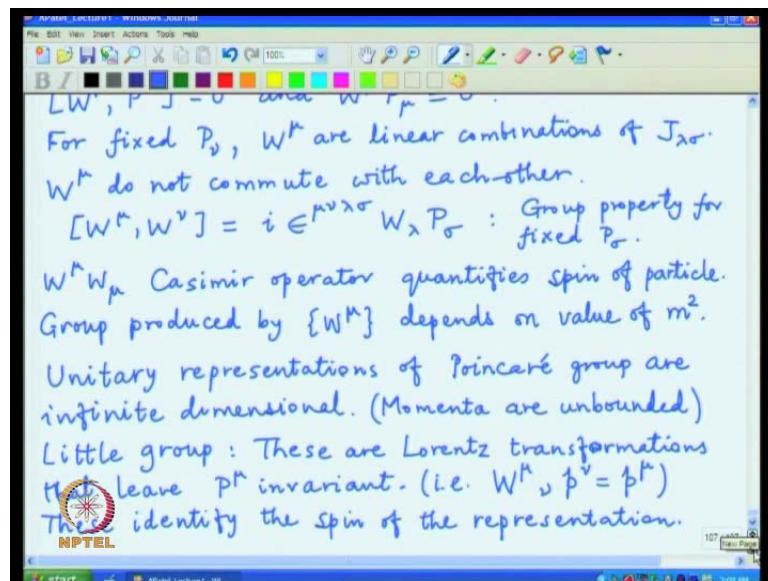 APatel_Lecture1 - Windows Journal
File Edit View Insert Actions Tools Help
100%
B I
[W^μ, P^ν] = 0 and W^μ P_μ = 0.
For fixed P_ν, W^μ are linear combinations of J_λσ.
W^μ do not commute with each-other.
[W^μ, W^ν] = i ∈^μνλσ W_λ P_σ : Group property for
fixed P_σ.
W^μ W_μ Casimir operator quantifies spin of particle.
Group produced by {W^μ} depends on value of m².
Unitary representations of Poincaré group are
infinite dimensional. (Momenta are unbounded)
Little group : These are Lorentz transformations
that leave P^μ invariant. (i.e. W^μ_ν p^ν = p^μ)
These identify the spin of the representation.
NPTEL
New Page
start